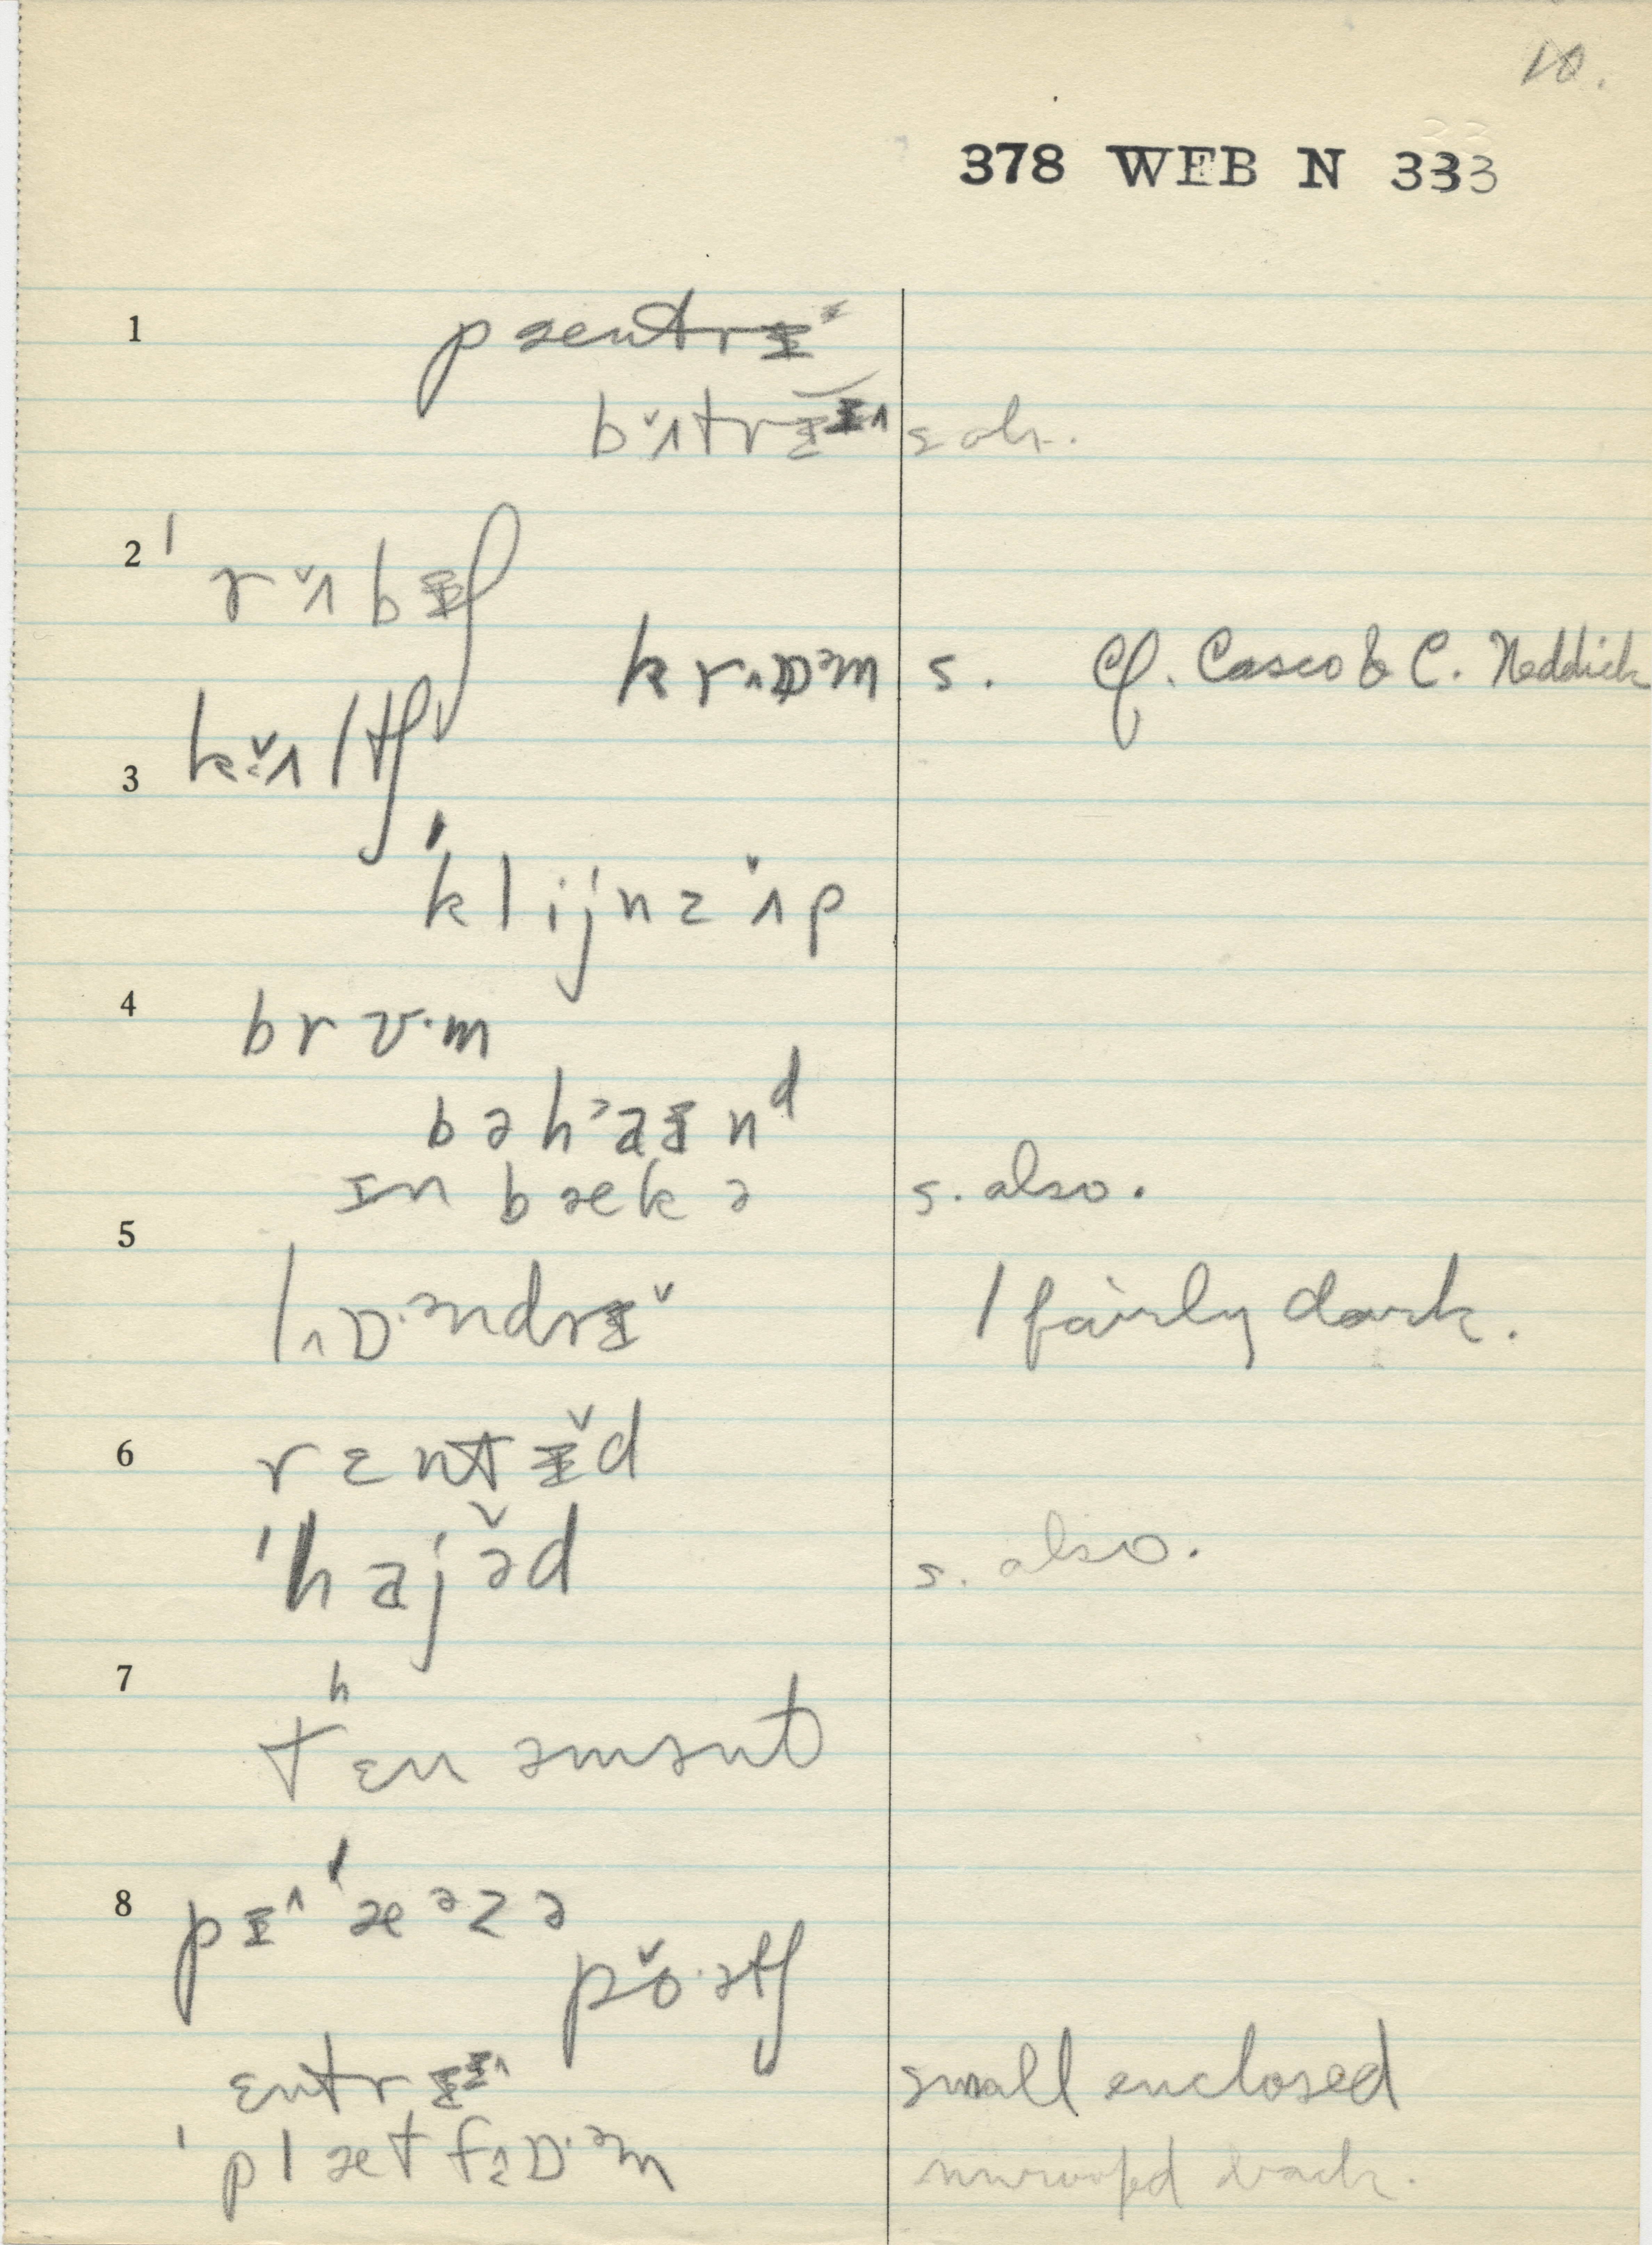 10.
378 WEB N 333
1 pæntrɪ
bʌ̌trɪɪ
2 'rʌ̌bɪʃ
krɒᵊm s. Cf. Casco & C. Neddick
3 kʌ̌ltʃ
'klijnzʌ̌p
4 brʊ·m
bəh'aɪnᵈ
ɪn bækə s. also.
5 lɒ·ᵊndrɪ̌ l fairly dark.
6 rɛntɪ̌d
'hajə̌d s. also.
7 tʰɛnəmənt
8 pɪ'æᵊzə
pǒ·ətʃ
ɛntrɪɪ small enclosed
'plætfɒ·ᵊm unroofed back.